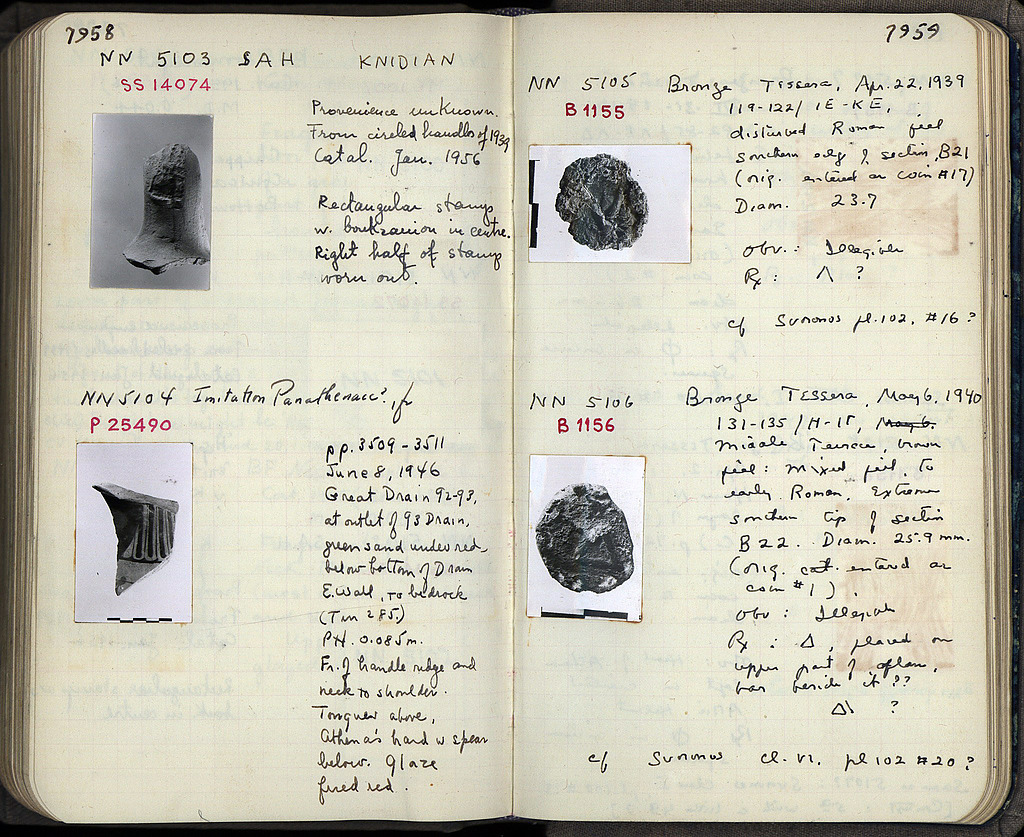 7958
NN 5103 SAH KNIDIAN
SS 14074
Provenience unknown.
From circled handles of 1939
Catal. Jan. 1956
Rectangular stamp
w. boukranion in centre.
Right half of stamp
worn out.
NN 5104 Imitation Panathenaic?, fr
P 25490
pp. 3509-3511
June 8, 1946
Great Drain 92-93,
at outlet of 93 Drain,
green sand under red,
below bottom of Drain
E. Wall, to bedrock
(Tin 285.)
P.H. 0.085m.
Fr. of handle ridge and
neck to shoulder.
Tongues above,
Athena's hand w spear
below. Glaze
fired red.
7959
NN 5105 Bronze Tessera, Apr. 22, 1939
B 1155
119-122/ IE-KE,
disturbed Roman fill
southern edge of section, B21
(orig. entered as coin #17)
Diam. 23.7
Obv.: Illegible
Rx: Λ ?
cf Svoronos pl. 102, #16 ?
NN 5106 Bronze Tessera, May 6, 1940
B 1156
131-135/H-IΓ, May 6.
Middle Terrace, brown
fill: mixed fill, to
early Roman. Extreme
southern tip of section
B22. Diam. 25.9 mm.
(orig. cat. entered as
coin #1).
Obv: Illegible
Rx: Δ, placed on
upper part of flan,
bar beside it ??
Δ\ ?
cf Svoronos cl. VI. pl 102 #20 ?